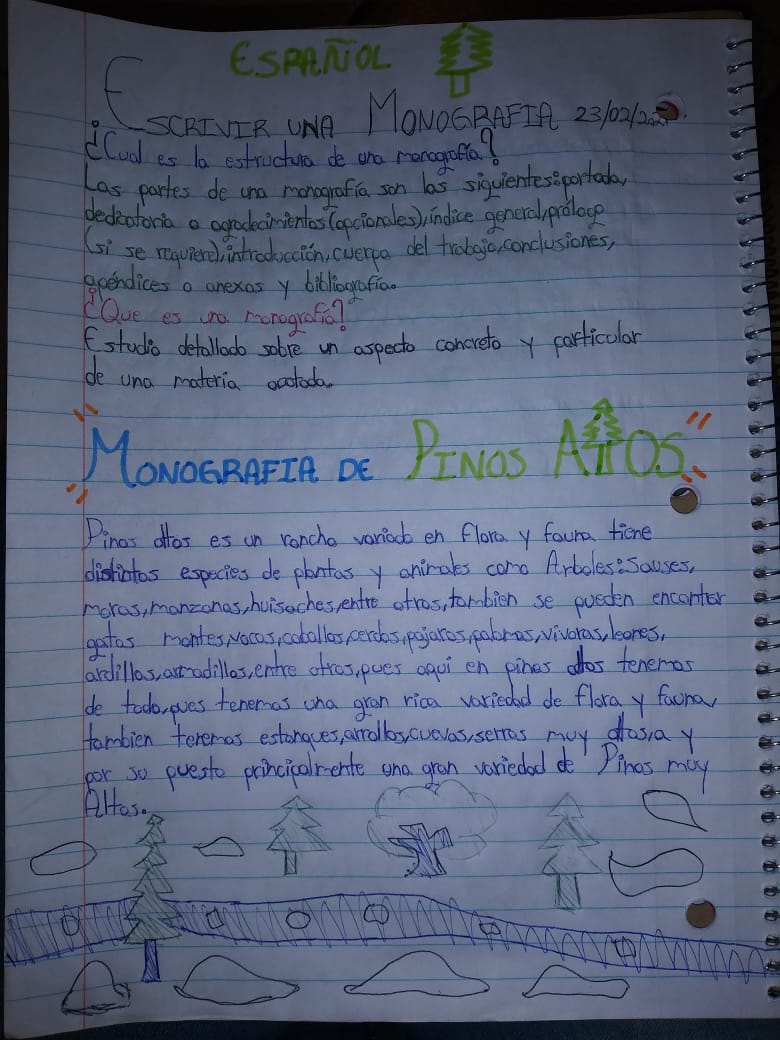 ESPAÑOL
ESCRIVIR UNA MONOGRAFIA 23/02/202
¿Cual es la estructura de una monografía?
Las partes de una monografía son las siguientes:portada,
dedicatoria o agradecimientos(opcionales),índice general,prólogo
(si se requiere),introducción,cuerpo del trabajo,conclusiones,
apéndices o anexos y bibliografía.
¿Que es una monografía?
Estudio detallado sobre un aspecto concreto y particular
de una materia acotada.
"MONOGRAFIA DE PINOS ALTOS"
Pinos altos es un rancho variado en flora y fauna tiene
distintos especies de plantas y animales como Arboles:Sauses,
moras,manzanas,huisaches,entre otras,tambien se pueden encontar
gatos montes,vacas,caballos,cerdos,pajaros,palomas,vivoras,leones,
ardillas,armadillos,entre otros,pues aquí en pinos altos tenemos
de todo,pues tenemos una gran rica variedad de flora y fauna,
tambien tenemos estanques,arrollos,cuevas,serros muy altos,a y
por su puesto principalmente una gran variedad de Pinos muy
Altos.